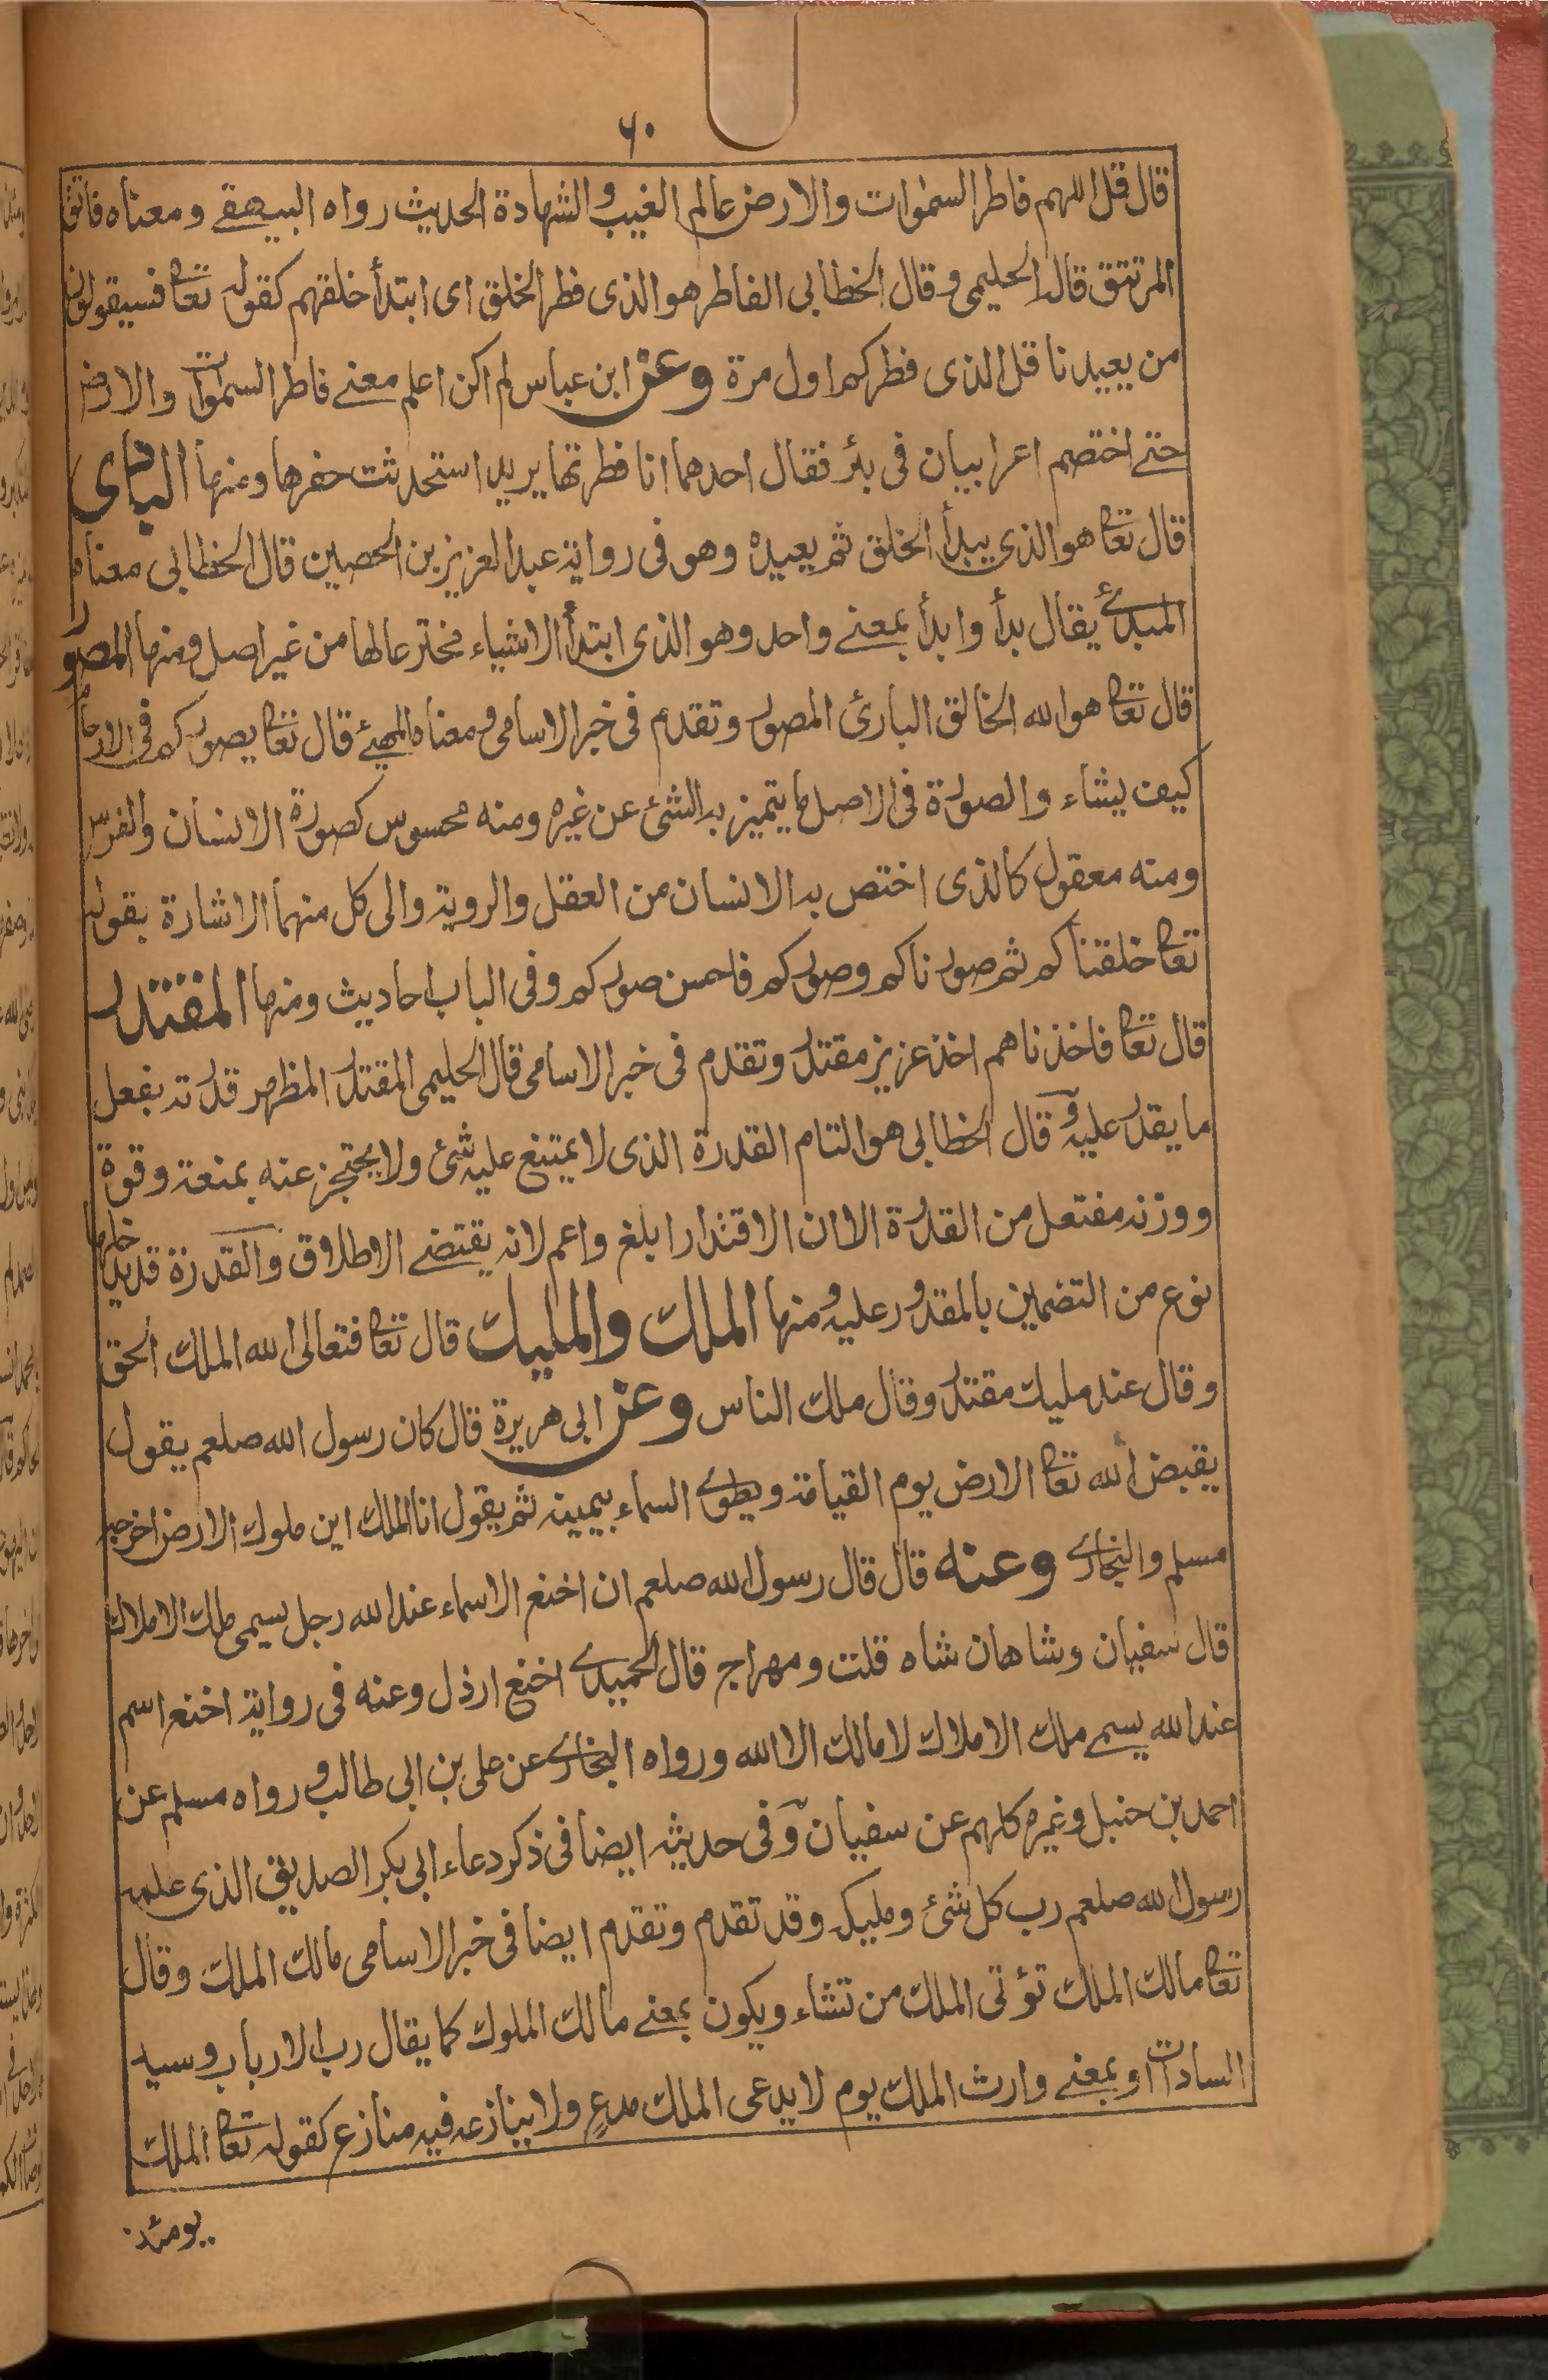 ٦٠
قال قل اللهم فاطر السمٰوات والارض عالم الغيب والشهادة الحديث رواه البيهقے ومعناه فاتق
المرتتق قاله الحليمى وقال الخطابى الفاطر هو الذى فطر الخلق اى ابتدأ خلقهم كقوله تعا فسيقولون
من يعيدنا قل الذى فطركم اول مرة وعن ابن عباس لم اكن اعلم معنے فاطر السمٰوات والارض
حتے اختصم اعرابيان فى بئر فقال احدهما انا فطرتها يريد استحدثت حفرها ومنها البادى
قال تعا هو الذى يبدأ الخلق ثم يعيده وهو فى رواية عبد العزيز بن الحصين قال الخطابى معناه
المبدئ يقال بدأ وابدأ بمعنے واحد وهو الذى ابتدأ الاشياء مخترعا لها من غير اصل ومنها المصور
قال تعا هو الله الخالق البارئ المصور وتقدم فى خبر الاسامى ومعناه المهيئ قال تعا يصوركم فى الارحام
كيف يشاء والصورة فى الاصل ما يتميز به الشئ عن غيره ومنه محسوس كصورة الانسان والفرس
ومنه معقول كالذى اختص به الانسان من العقل والروية والى كل منهما الاشارة بقوله
تعا خلقناكم ثم صورناكم وصوركم فاحسن صوركم وفى الباب احاديث ومنها المقتدر
قال تعا فاخذناهم اخذ عزيز مقتدر وتقدم فى خبر الاسامى قال الحليمى المقتدر المظهر قدرته بفعل
ما يقدر عليه وقال الخطابى هو التام القدرة الذى لا يمتنع عليه شئ ولا يحتجز عنه بمنعة وقوة
ووزنه مفتعل من القدرة الا ان الاقتدار ابلغ واعم لانه يقتضے الاطلاق والقدرة قد يدخلها
نوع من التضمين بالمقدور عليه ومنها الملك والمليك قال تعا فتعالى الله الملك الحق
وقال عند مليك مقتدر وقال ملك الناس وعن ابى هريرة قال كان رسول الله صلعم يقول
يقبض الله تعا الارض يوم القيامة ويطوے السماء بيمينه ثم يقول انا الملك اين ملوك الارض اخرجه
مسلم والبخارے وعنه قال قال رسول الله صلعم ان اخنع الاسماء عند الله رجل يسمى ملك الاملاك
قال سفيان وشاهان شاه قلت ومهراج قال الحميدے اخنع ارذل وعنه فى رواية اخنع اسم
عند الله يسمے ملك الاملاك لا مالك الا الله ورواه البخارے عن على بن ابى طالب ورواه مسلم عن
احمد بن حنبل وغيره كلهم عن سفيان وفى حديثه ايضا فى ذكر دعاء ابى بكر الصديق الذى علمه
رسول الله صلعم رب كل شئ ومليكه وقد تقدم وتقدم ايضا فى خبر الاسامى مالك الملك وقال
تعا مالك الملك تؤتى الملك من تشاء ويكون بمعنے مالك الملوك كما يقال رب الارباب وسيد
السادات او بمعنے وارث الملك يوم لا يدعى الملك مدعٍ ولا ينازعه فيه منازع كقوله تعا الملك
يومئذ